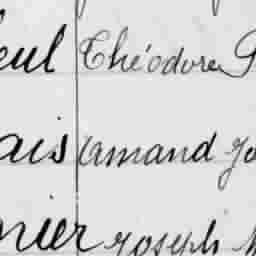 eul Théodore P
ais Amand Jo
nier Joseph M